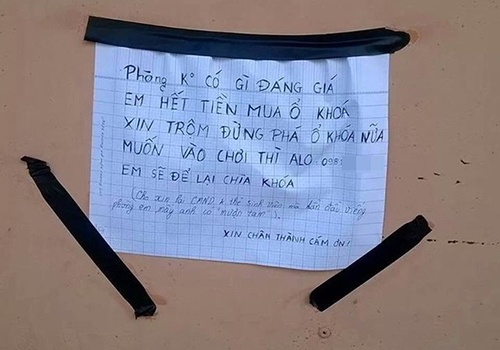 Phòng K° CÓ GÌ ĐÁNG GIÁ
EM HẾT TIỀN MUA Ổ KHOÁ
XIN TRỘM ĐỪNG PHÁ Ổ KHÓA NỮA
MUỐN VÀO CHƠI THÌ ALO 098
EM SẼ ĐỂ LẠI CHÌA KHÓA
(Cho xin lại CMND, & thẻ sinh viên, mà lần đầu viếng
phòng em này anh có "nuôn tâm").
XIN CHÂN THÀNH CẢM ƠN!